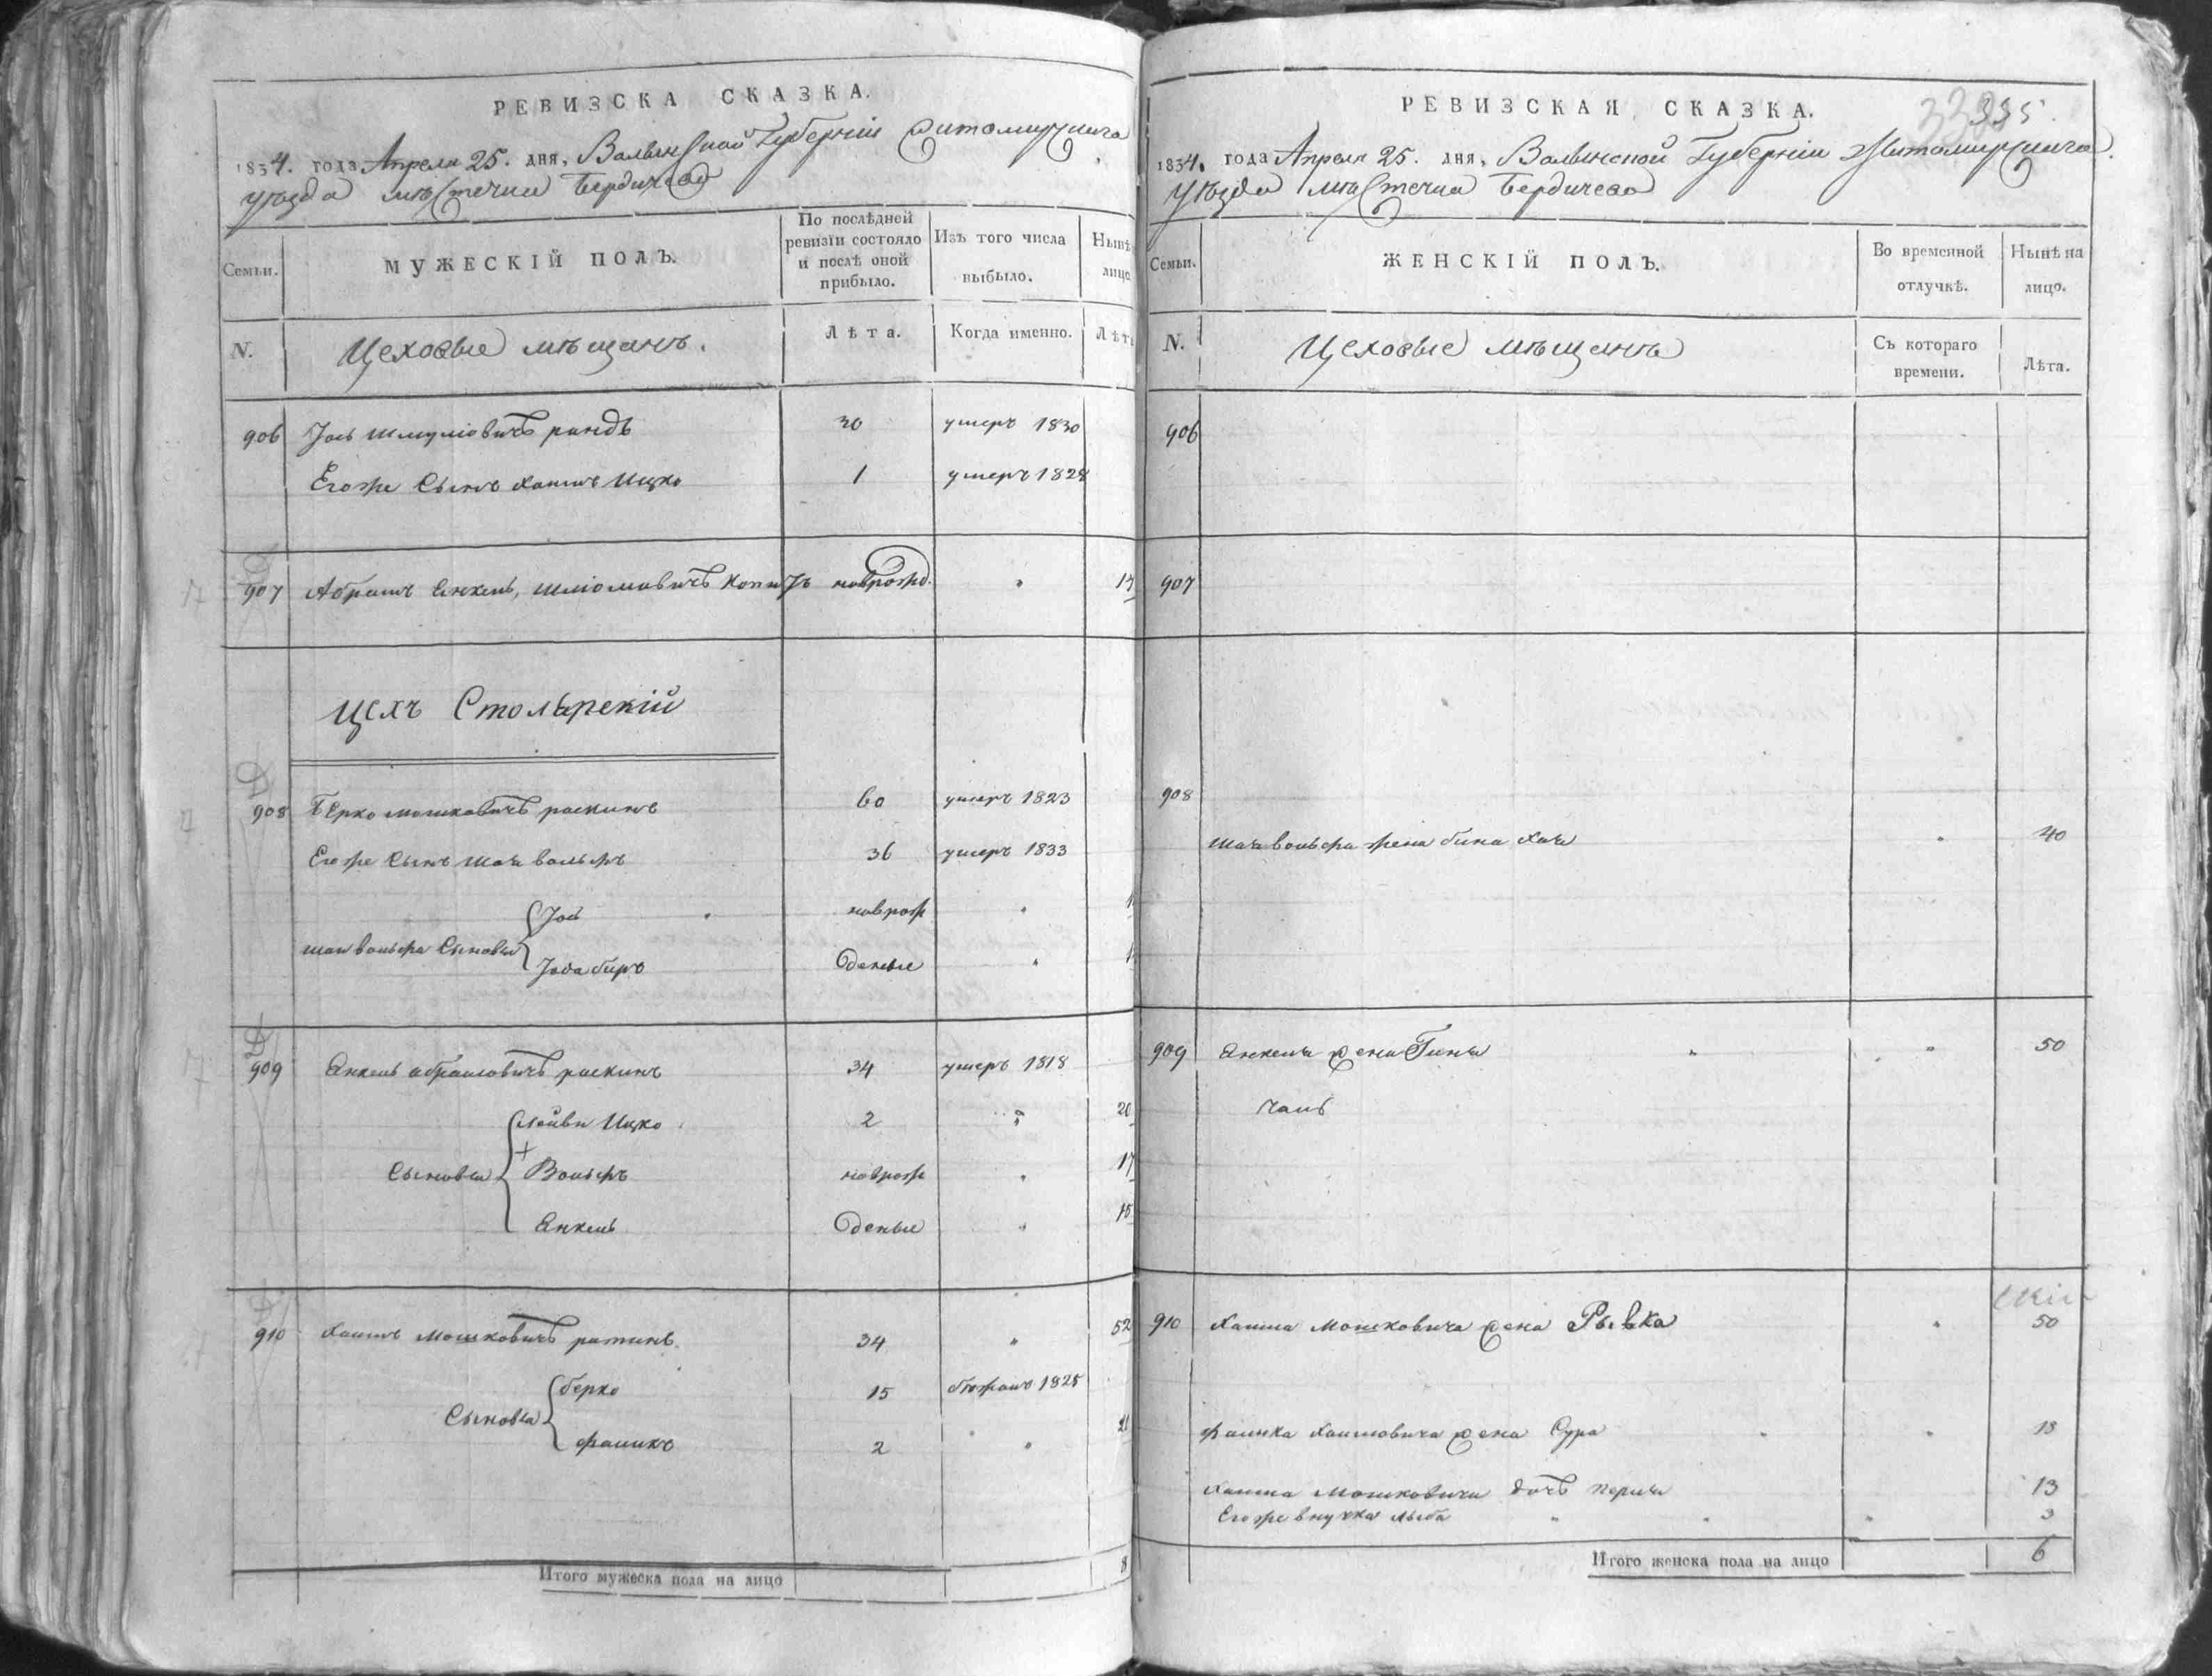 РЕВИЗСКА СКАЗКА.
1834. года Апреля 25. дня, Волынской Губерніи Житомирскаго
уѣзда мѣстечка Бердичева
Семьи.
МУЖЕСКІЙ ПОЛЪ.
По послѣдней ревизіи состояло и послѣ оной прибыло.
Изъ того числа выбыло.
Нынѣ лицо
N.
Цеховые мѣщанъ.
Лѣта.
Когда именно.
Лѣт
906 Іось Шмуліовичъ рандъ 30 умеръ 1830
Егоже Сынъ Хаимъ Ицко 1 умеръ 1828
907 Абрамъ Янкель, Шліомовичъ новрожд. " 14
Цехъ Столярскій
908 Берко Мошковичъ раскинъ 60 умеръ 1823
Егоже Сынъ Шая вольфъ 36 умеръ 1833
Іось новрож "
Шаи вольфа Сыновья
Іова биръ деные "
909 Янкель абрамовичъ раскинъ 34 умеръ 1818
Лейви Ицко 2 " 20
Сыновья Вольфъ новрож " 17
Янкель деные " 15
910 Хаимъ Мошковичъ ратинъ 34 " 52
берко 15 бѣжалъ 1825
Сыновья
фаликъ 2 " 21
Итого мужеска пола на лицо 8
РЕВИЗСКАЯ СКАЗКА.
335.
1834. года Апреля 25. дня, Волынской Губерніи Житомирскаго
уѣзда мѣстечка Бердичева
Семьи.
ЖЕНСКІЙ ПОЛЪ.
Во временной отлучкѣ.
Нынѣ на лицо.
N.
Цеховые мѣщанъ
Съ котораго времени.
Лѣта.
906
907
908
Шаи вольфа жена бина Хая " 40
909 Янкеля жена Гинь " " 50
чаль
910 Хаима Мошковича жена Рывка " 50
фалика Хаимовича жена Сура " " 18
Хаима Мошковича дочь перля 13
Егоже внучка лыба " " " 3
Итого женска пола на лицо 6